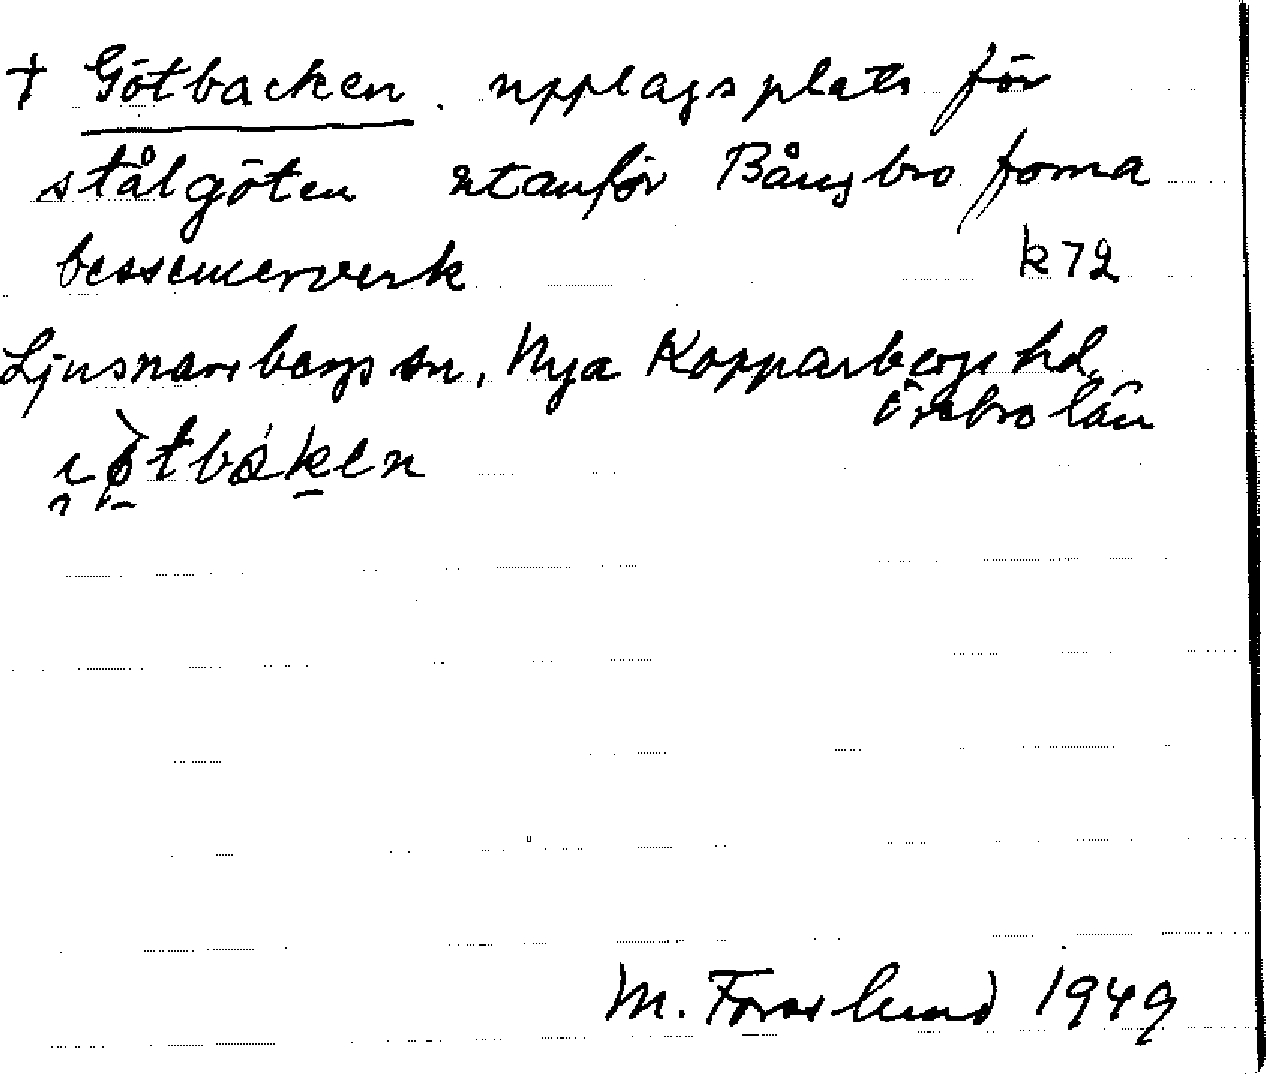 † Götbacken. upplagsplats för
stålgöten utanför Bångbro forna
bessemerverk k72
Ljusnarsbergs sn, Nya Kopparbergs hd
Örebro län
M. Forslund 1949